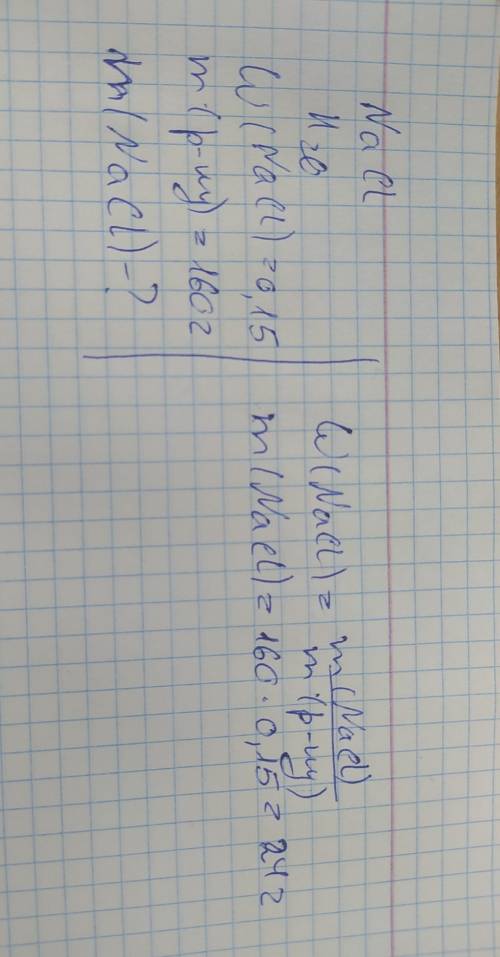 NaCl
W(NaCl) = 0,15
m(р-ну) = 160г
m(NaCl) - ?
W(NaCl) = m(NaCl) / m(р-ну)
m(NaCl) = 160 · 0,15 = 24г